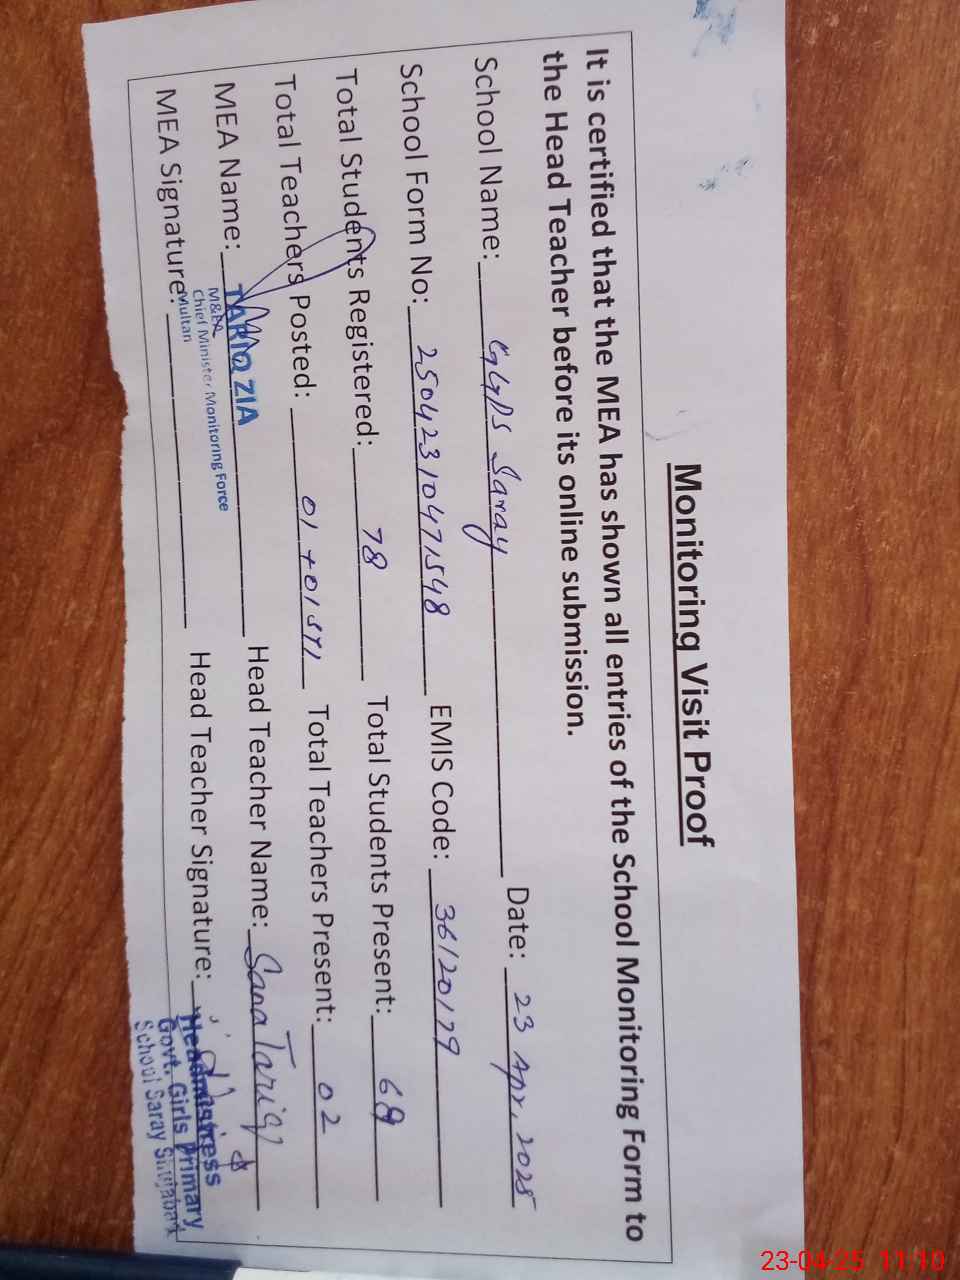 Monitoring Visit Proof
It is certified that the MEA has shown all entries of the School Monitoring Form to
the Head Teacher before its online submission.
School Name: GGPS Saray Date: 23 Apr. 2025
School Form No: 25042310471548 EMIS Code: 36120179
Total Students Registered: 78 Total Students Present: 69
Total Teachers Posted: 01+01STI Total Teachers Present: 02
MEA Name: TARIQ ZIA Head Teacher Name: Sana Tariq
M&EA
Chief Minister Monitoring Force
Multan
MEA Signature: Head Teacher Signature:
Headmistress
Govt. Girls Primary
School Saray Shujabad
23-04-25 11:10